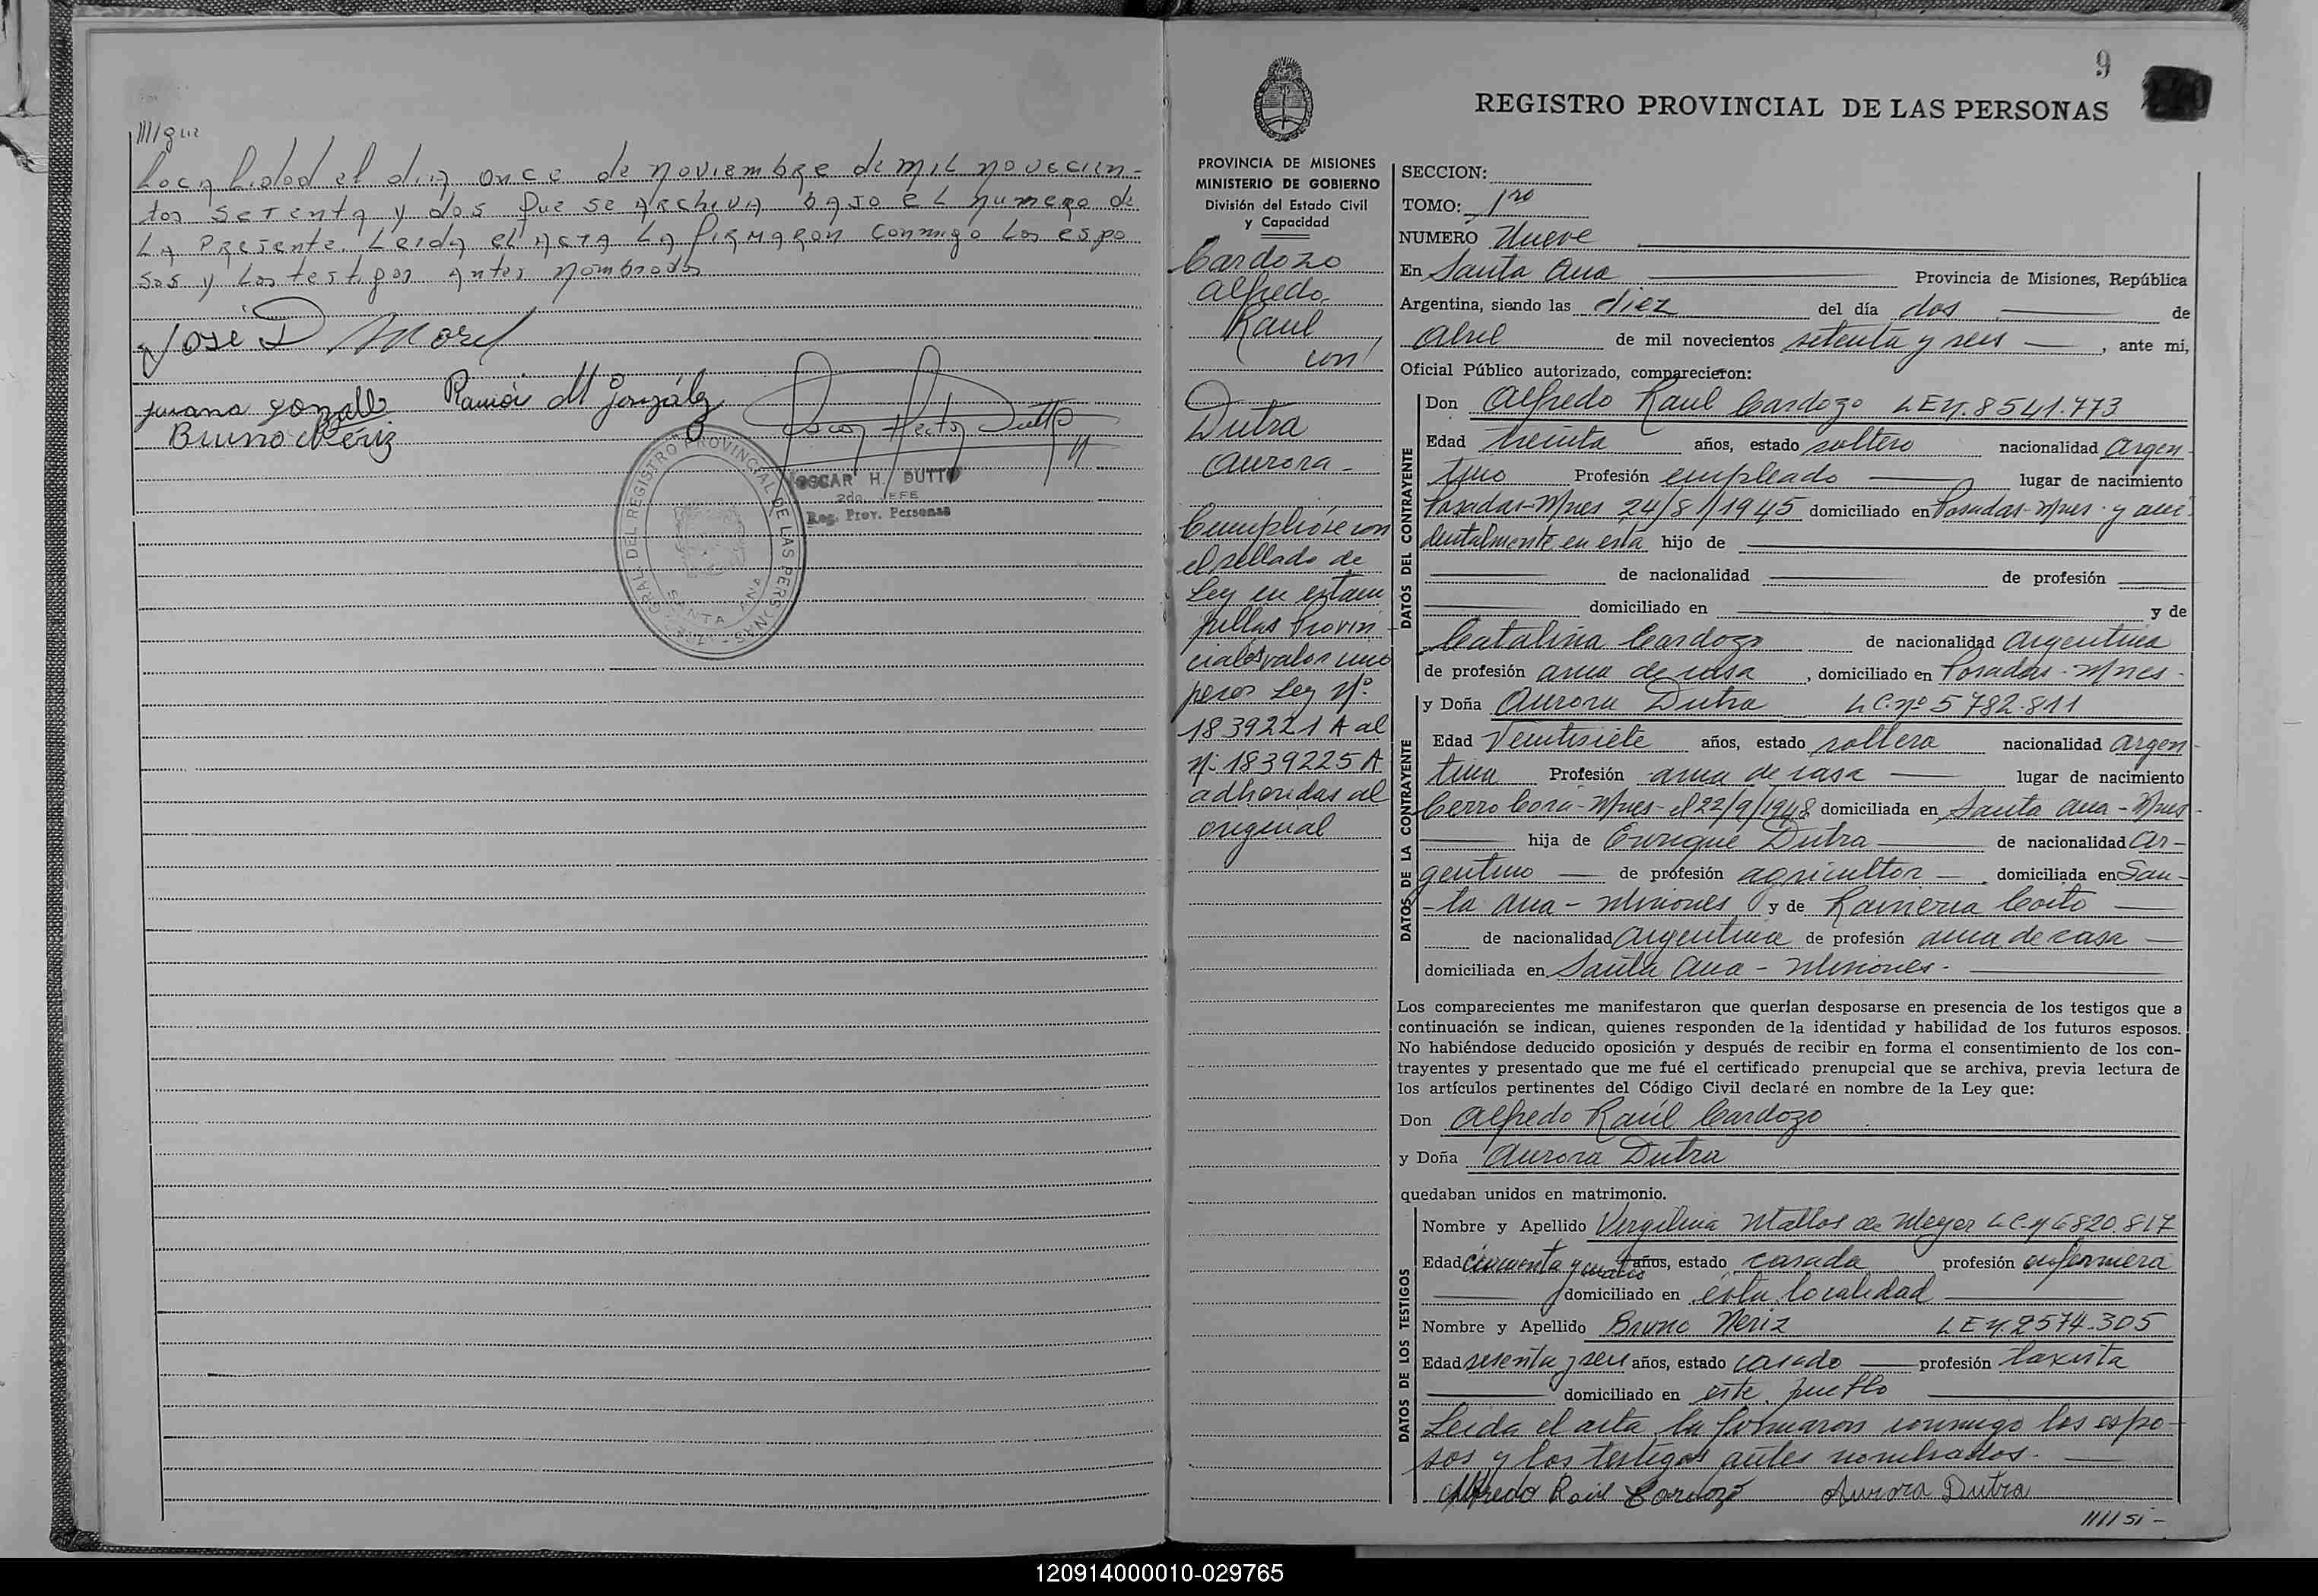 ////que
Localidad el dia once de noviembre de mil novecien-
tos setenta y dos que se archiva bajo el numero de
la presente. Leida el acta la firmaron conmigo los espo
sos y los testigos antes nombrados
José D Morel
juana gonzalb Ramón M González
Bruno Neriz
OSCAR H. DUTTO
2do. JEFE
Reg. Prov. Personas
GRAL. DEL REGISTRO PROVINCIAL DE LAS PERSONAS
SANTA ANA
9
REGISTRO PROVINCIAL DE LAS PERSONAS
PROVINCIA DE MISIONES
MINISTERIO DE GOBIERNO
División del Estado Civil
y Capacidad
Cardozo
Alfredo
Raul
con
Dutra
Aurora -
Cumplióse con
el sellado de
Ley en estam
pillas Provin
ciales valor uno
pesos Ley Nº
1839221 A al
Nº 1839225 A
adheridas al
original
SECCION:
TOMO: 1ro
NUMERO Nueve
En Santa Ana Provincia de Misiones, República
Argentina, siendo las diez del día dos de
Abril de mil novecientos setenta y seis , ante mi,
Oficial Público autorizado, comparecieron:
DATOS DEL CONTRAYENTE
Don Alfredo Raul Cardozo L E Nº. 8541.773
Edad treinta años, estado soltero nacionalidad Argen-
tino Profesión empleado lugar de nacimiento
Posadas-Mnes 24/8/1945 domiciliado en Posadas-Mnes y acci
dentalmente en esta hijo de
de nacionalidad de profesión
domiciliado en y de
Catalina Cardozo de nacionalidad Argentina
de profesión ama de casa , domiciliado en Posadas-Mnes-
DATOS DE LA CONTRAYENTE
y Doña Aurora Dutra L C. nº 5782.811
Edad Veintisiete años, estado soltera nacionalidad Argen-
tina Profesión ama de casa lugar de nacimiento
Cerro Cora-Mnes-el 22/9/1948 domiciliada en Santa Ana-Mnes-
hija de Enrique Dutra de nacionalidad Ar-
gentino de profesión agricultor domiciliada en San-
-ta Ana-Misiones y de Raineria Coito
de nacionalidad Argentina de profesión ama de casa
domiciliada en Santa Ana-Misiones-
Los comparecientes me manifestaron que querían desposarse en presencia de los testigos que a
continuación se indican, quienes responden de la identidad y habilidad de los futuros esposos.
No habiéndose deducido oposición y después de recibir en forma el consentimiento de los con-
trayentes y presentado que me fué el certificado prenupcial que se archiva, previa lectura de
los artículos pertinentes del Código Civil declaré en nombre de la Ley que:
Don Alfredo Raúl Cardozo
y Doña Aurora Dutra
quedaban unidos en matrimonio.
DATOS DE LOS TESTIGOS
Nombre y Apellido Vergilina Mattos de Meyer L C. Nº 6820.817
Edad cincuenta y cuatro años, estado casada profesión enfermera
domiciliado en ésta localidad
Nombre y Apellido Bruno Neriz L E Nº. 2574.305
Edad sesenta y seis años, estado casado profesión taxista
domiciliado en este pueblo
Leida el acta la firmaron conmigo los espo-
sos y los testigos antes nombrados.
Alfredo Raúl Cardozo Aurora Dutra
///// si -
120914000010-029765